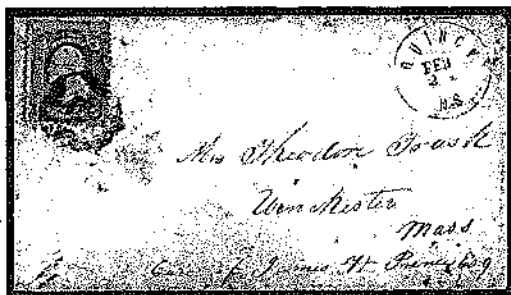 QUINCY
FEB
2
MS
Mrs Theodore Trask
Winchester
Mass
Care of James H.